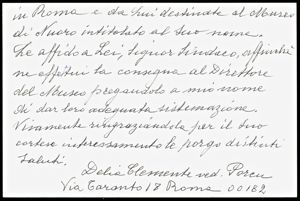 in Roma e da Lui destinate al Museo
di Nuoro intitolato al Suo nome.
Le affido a Lei, Signor Sindaco, affinchè
ne effettui la consegna al Direttore
del Museo pregandolo a mio nome
di dar loro adeguata sistemazione.
Vivamente ringraziandola per il Suo
cortese interessamento le porgo distinti
saluti.
Delia Clemente ved. Porcu
Via Taranto 18 Roma 00182